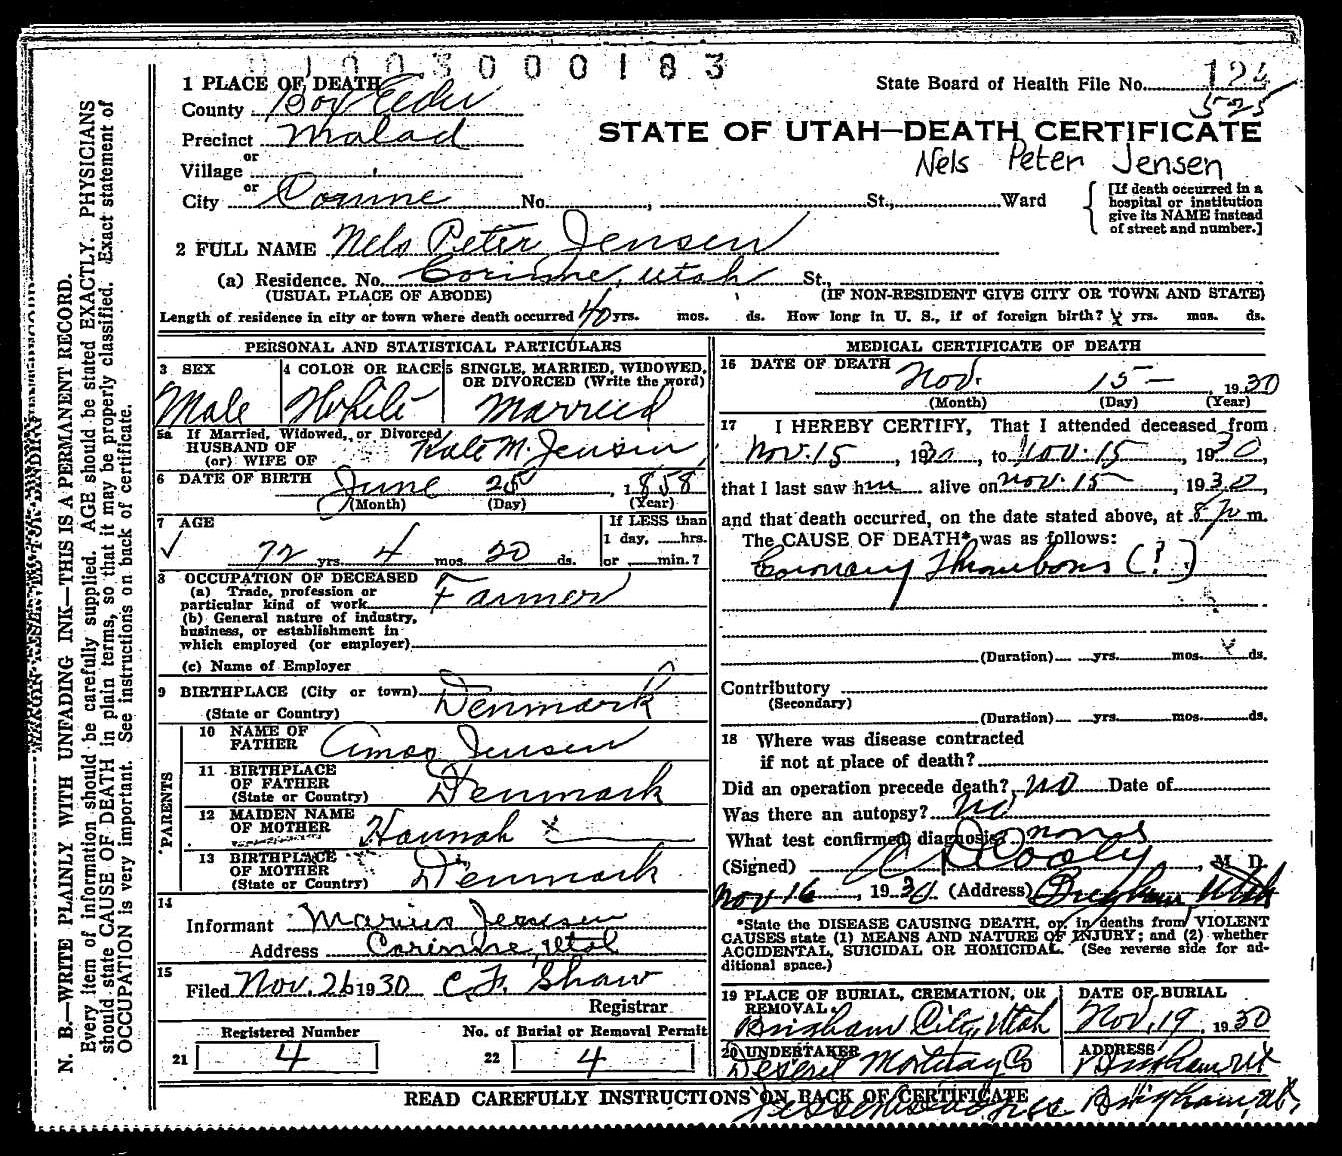 0 1 0 0 3 0 0 0 1 8 3
1 PLACE OF DEATH
State Board of Health File No. 124
525
County Box Elder
STATE OF UTAH—DEATH CERTIFICATE
Precinct Malad
Nels Peter Jensen
or
Village
or
City Corinne No. , St., Ward
[If death occurred in a
hospital or institution
give its NAME instead
of street and number.]
2 FULL NAME Nels Peter Jensen
(a) Residence. No. Corinne, Utah St.,
(USUAL PLACE OF ABODE) (IF NON-RESIDENT GIVE CITY OR TOWN AND STATE)
Length of residence in city or town where death occurred 40 yrs. mos. ds. How long in U. S., if of foreign birth? yrs. mos. ds.
PERSONAL AND STATISTICAL PARTICULARS
3 SEX
Male
4 COLOR OR RACE
White
5 SINGLE, MARRIED, WIDOWED,
OR DIVORCED (Write the word)
Married
5a If Married, Widowed, or Divorced
HUSBAND OF
(or) WIFE OF Kate M. Jensen
6 DATE OF BIRTH June 25, 1858
(Month) (Day) (Year)
7 AGE
72 yrs. 4 mos. 20 ds.
If LESS than
1 day, hrs.
or min.?
8 OCCUPATION OF DECEASED
(a) Trade, profession or
particular kind of work Farmer
(b) General nature of industry,
business, or establishment in
which employed (or employer)
(c) Name of Employer
9 BIRTHPLACE (City or town)
(State or Country) Denmark
PARENTS
10 NAME OF
FATHER Amos Jensen
11 BIRTHPLACE
OF FATHER
(State or Country) Denmark
12 MAIDEN NAME
OF MOTHER Hannah x
13 BIRTHPLACE
OF MOTHER
(State or Country) Denmark
14
Informant Marius Jensen
Address Corinne, Utah
15
Filed Nov. 26 1930 C. F. Shaw
Registrar
Registered Number
21 4
No. of Burial or Removal Permit
22 4
MEDICAL CERTIFICATE OF DEATH
16 DATE OF DEATH Nov. 15 — , 1930
(Month) (Day) (Year)
17 I HEREBY CERTIFY, That I attended deceased from
Nov. 15, 1930, to Nov. 15, 1930,
that I last saw him alive on Nov. 15, 1930,
and that death occurred, on the date stated above, at 8 p m.
The CAUSE OF DEATH* was as follows:
Coronary Thrombosis (?)
(Duration) yrs. mos. ds.
Contributory
(Secondary)
(Duration) yrs. mos. ds.
18 Where was disease contracted
if not at place of death?
Did an operation precede death? No Date of
Was there an autopsy? No
What test confirmed diagnosis? none
(Signed) Cooley, M. D.
Nov 16, 1930 (Address) Brigham, Utah
*State the DISEASE CAUSING DEATH, or, in deaths from VIOLENT
CAUSES state (1) MEANS AND NATURE OF INJURY; and (2) whether
ACCIDENTAL, SUICIDAL OR HOMICIDAL. (See reverse side for ad-
ditional space.)
19 PLACE OF BURIAL, CREMATION, OR
REMOVAL.
Brigham City, Utah
DATE OF BURIAL
Nov, 19 1930
20 UNDERTAKER
Deseret Mortuary Co
ADDRESS
Brigham Ut
READ CAREFULLY INSTRUCTIONS ON BACK OF CERTIFICATE
Brigham, Ut,
N. B.—WRITE PLAINLY WITH UNFADING INK—THIS IS A PERMANENT RECORD.
Every item of information should be carefully supplied. AGE should be stated EXACTLY. PHYSICIANS
should state CAUSE OF DEATH in plain terms, so that it may be properly classified. Exact statement of
OCCUPATION is very important. See instructions on back of certificate.